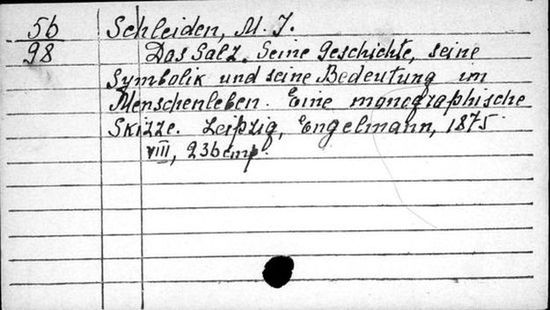 56 Schleiden, M. J.
98 Das Salz. Seine Geschichte, seine
Symbolik und seine Bedeutung im
Menschenleben. Eine monographische
Skizze. Leipzig, Engelmann, 1875
VIII, 236 стр.